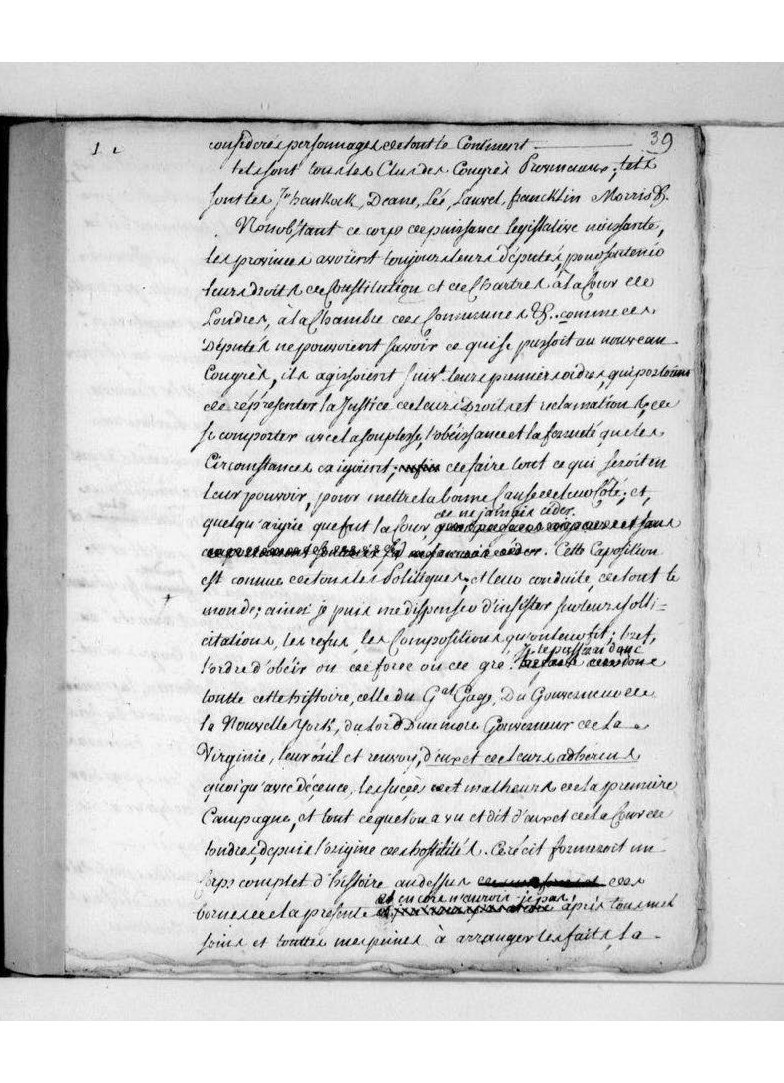 39
considerés personnages de tout le Continent
tels sont tous les Clus des Congrès Provinciaux; tels
sont les Jn hankock, Deane, Lée, Laurel, francklin Morris &.
Nonobstant ce corps de puissance legislative naissante,
les provinces avoient toujours leurs députés, pour soutenir
leurs droits de Constitution et de Chartres à la Cour de
Londres, à la Chambre des Communes &. comme ces
Députés ne pouvoient savoir ce qui se passoit au nouveau
Congrès, ils agissoient suivt. leurs premiers ordres, qui portoient
de répresenter la Justice de leurs Droits et reclamations, de
se comporter avec la souplesse, l'obéissance et la fermeté que les
Circonstances exigoient; de faire tout ce qui seroit en
leur pouvoir, pour mettre la bonne Cause de leur Côté; et,
de ne jamais céder.
quelqu'aigrie que fut la Cour,
céder. Cette Exposition
est connue de tous les Politiques; et leur conduite, de tout le
monde; ainsi je puis me dispenser d'insister sur leurs solli=
citations, les refus, les Compositions qu'on leur fit; bref,
je passerai donc
l'ordre d'obéir ou de force ou de gré.
toutte cette histoire, celle du Gal Gage, Du Gouverneur de
la Nouvelle York, du lord Dunmore Gouverneur de la
Virginie, leur exil et renvoy, d'eux et de leurs adhérens
quoiqu'avec décence, les succès et malheurs de la premiere
Campagne, et tout ce que l'on a vu et dit d'eux et de la Cour de
Londres, depuis l'origine des hostilités. Ce récit formeroit un
Corps complet d'histoire au dessus des
et encore n'aurois je pas,
bornes de la presente après tous mes
soins et touttes mes peines à arranger les faits, la